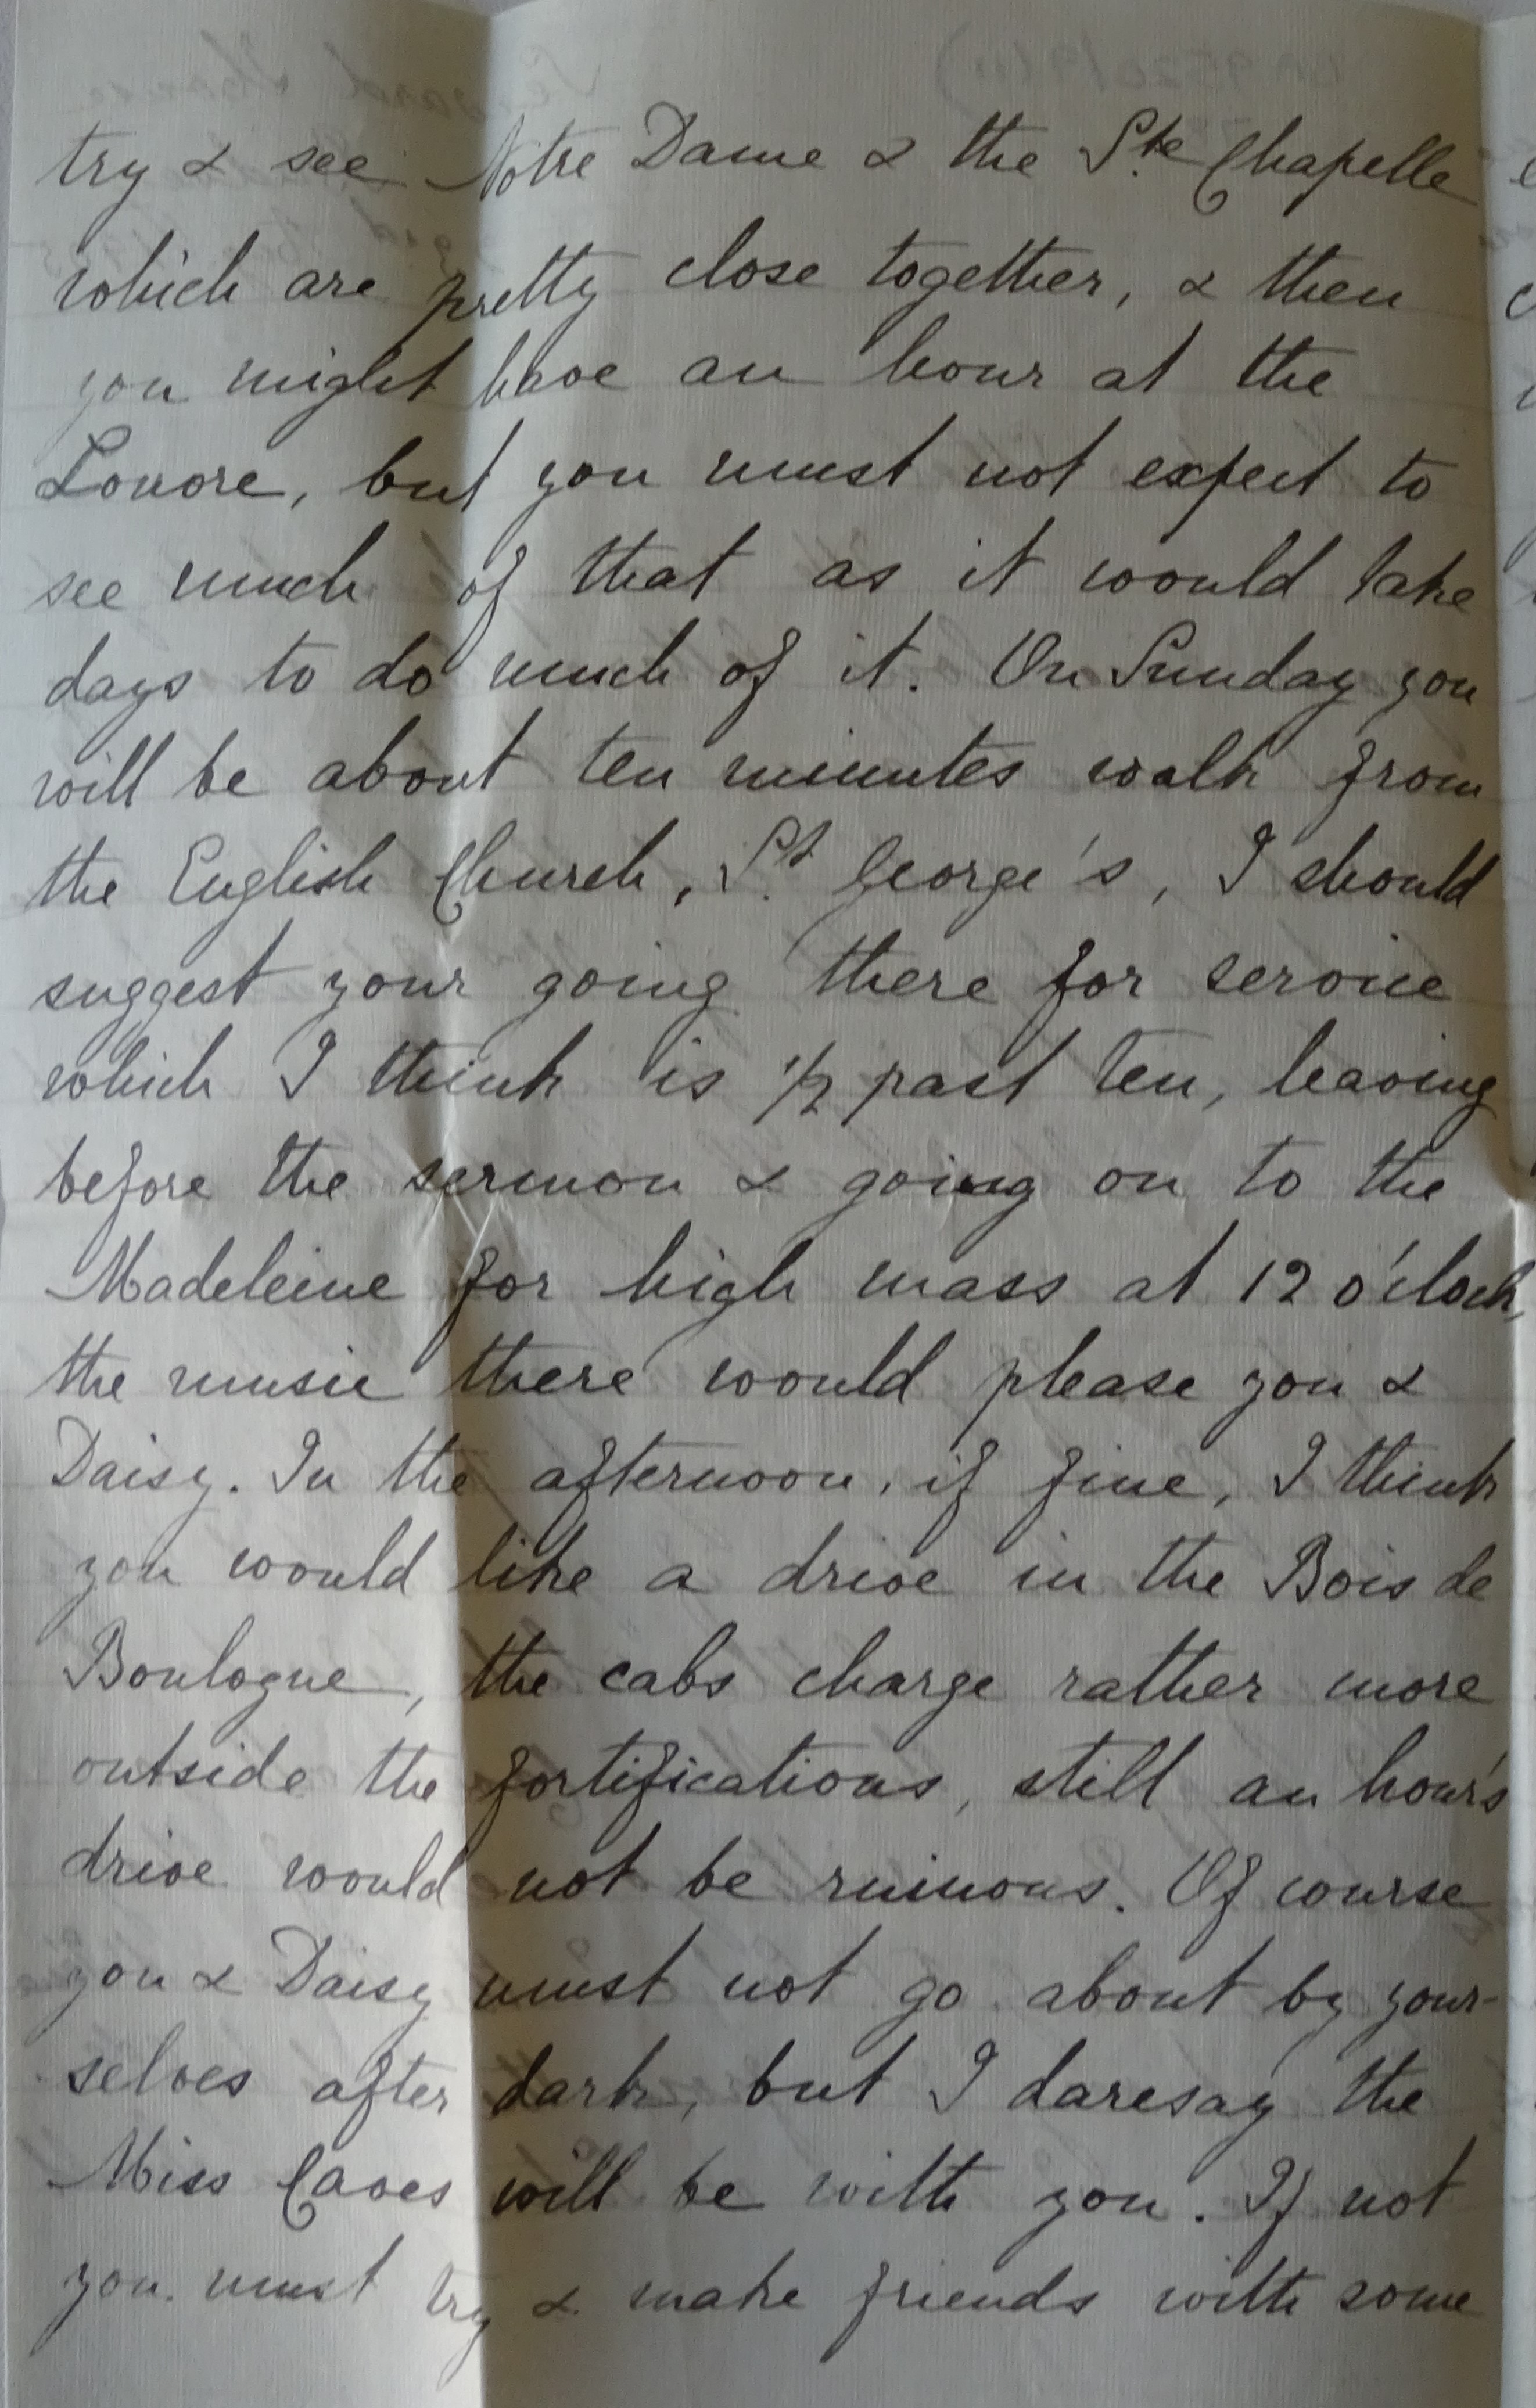 try & see Notre Dame & the Ste Chapelle
which are pretty close together, & then
you might have an hour at the
Louvre, but you must not expect to
see much of that as it would take
days to do much of it. On Sunday you
will be about ten minutes walk from
the English Church, St. George's, I should
suggest your going there for service
which I think is 1/2 past ten, leaving
before the sermon & going on to the
Madeleine for high mass at 12 o'clock,
the music there would please you &
Daisy. In the afternoon, if fine, I think
you would like a drive in the Bois de
Boulogne, the cabs charge rather more
outside the fortifications, still an hour's
drive would not be ruinous. Of course
you & Daisy must not go about by your-
selves after dark, but I daresay the
Miss Caves will be with you. If not
you must try & make friends with some